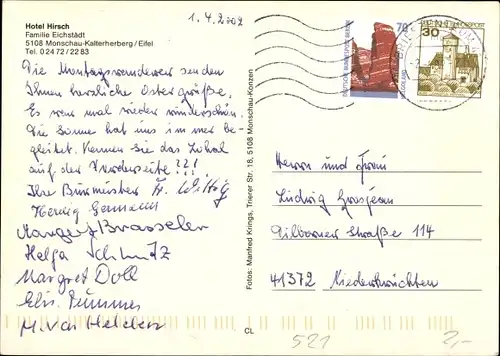 Hotel Hirsch
Familie Eichstädt
5108 Monschau-Kalterherberg / Eifel
Tel. 0 24 72 / 22 83
1.4.2002
70
DEUTSCHE BUNDESPOST BERLIN
HELGOLAND
30
DEUTSCHE BUNDESPOST
Die Montagswanderer senden
Ihnen herzliche Ostergrüße.
Es war mal wieder wunderschön.
Die Sonne hat uns immer be-
gleitet. Kennen Sie das Lokal
auf der Vorderseite?!!
Ihre Burmüster Fr. Wittig
Herwig Germann
Margret Brasseler
Helga Schmitz
Margret Doll
Elis. Dümmer
M. van Helden
Fotos: Manfred Krings, Trierer Str. 18, 5108 Monschau-Konzen
Herrn und Frau
Ludwig Grosjean
Gilborner Straße 114
41372 Niederkrüchten
CL
521
2,-